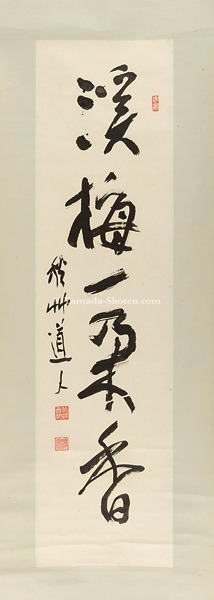 溪梅一朶香
秋艸道人
Yamada-Shoten.com